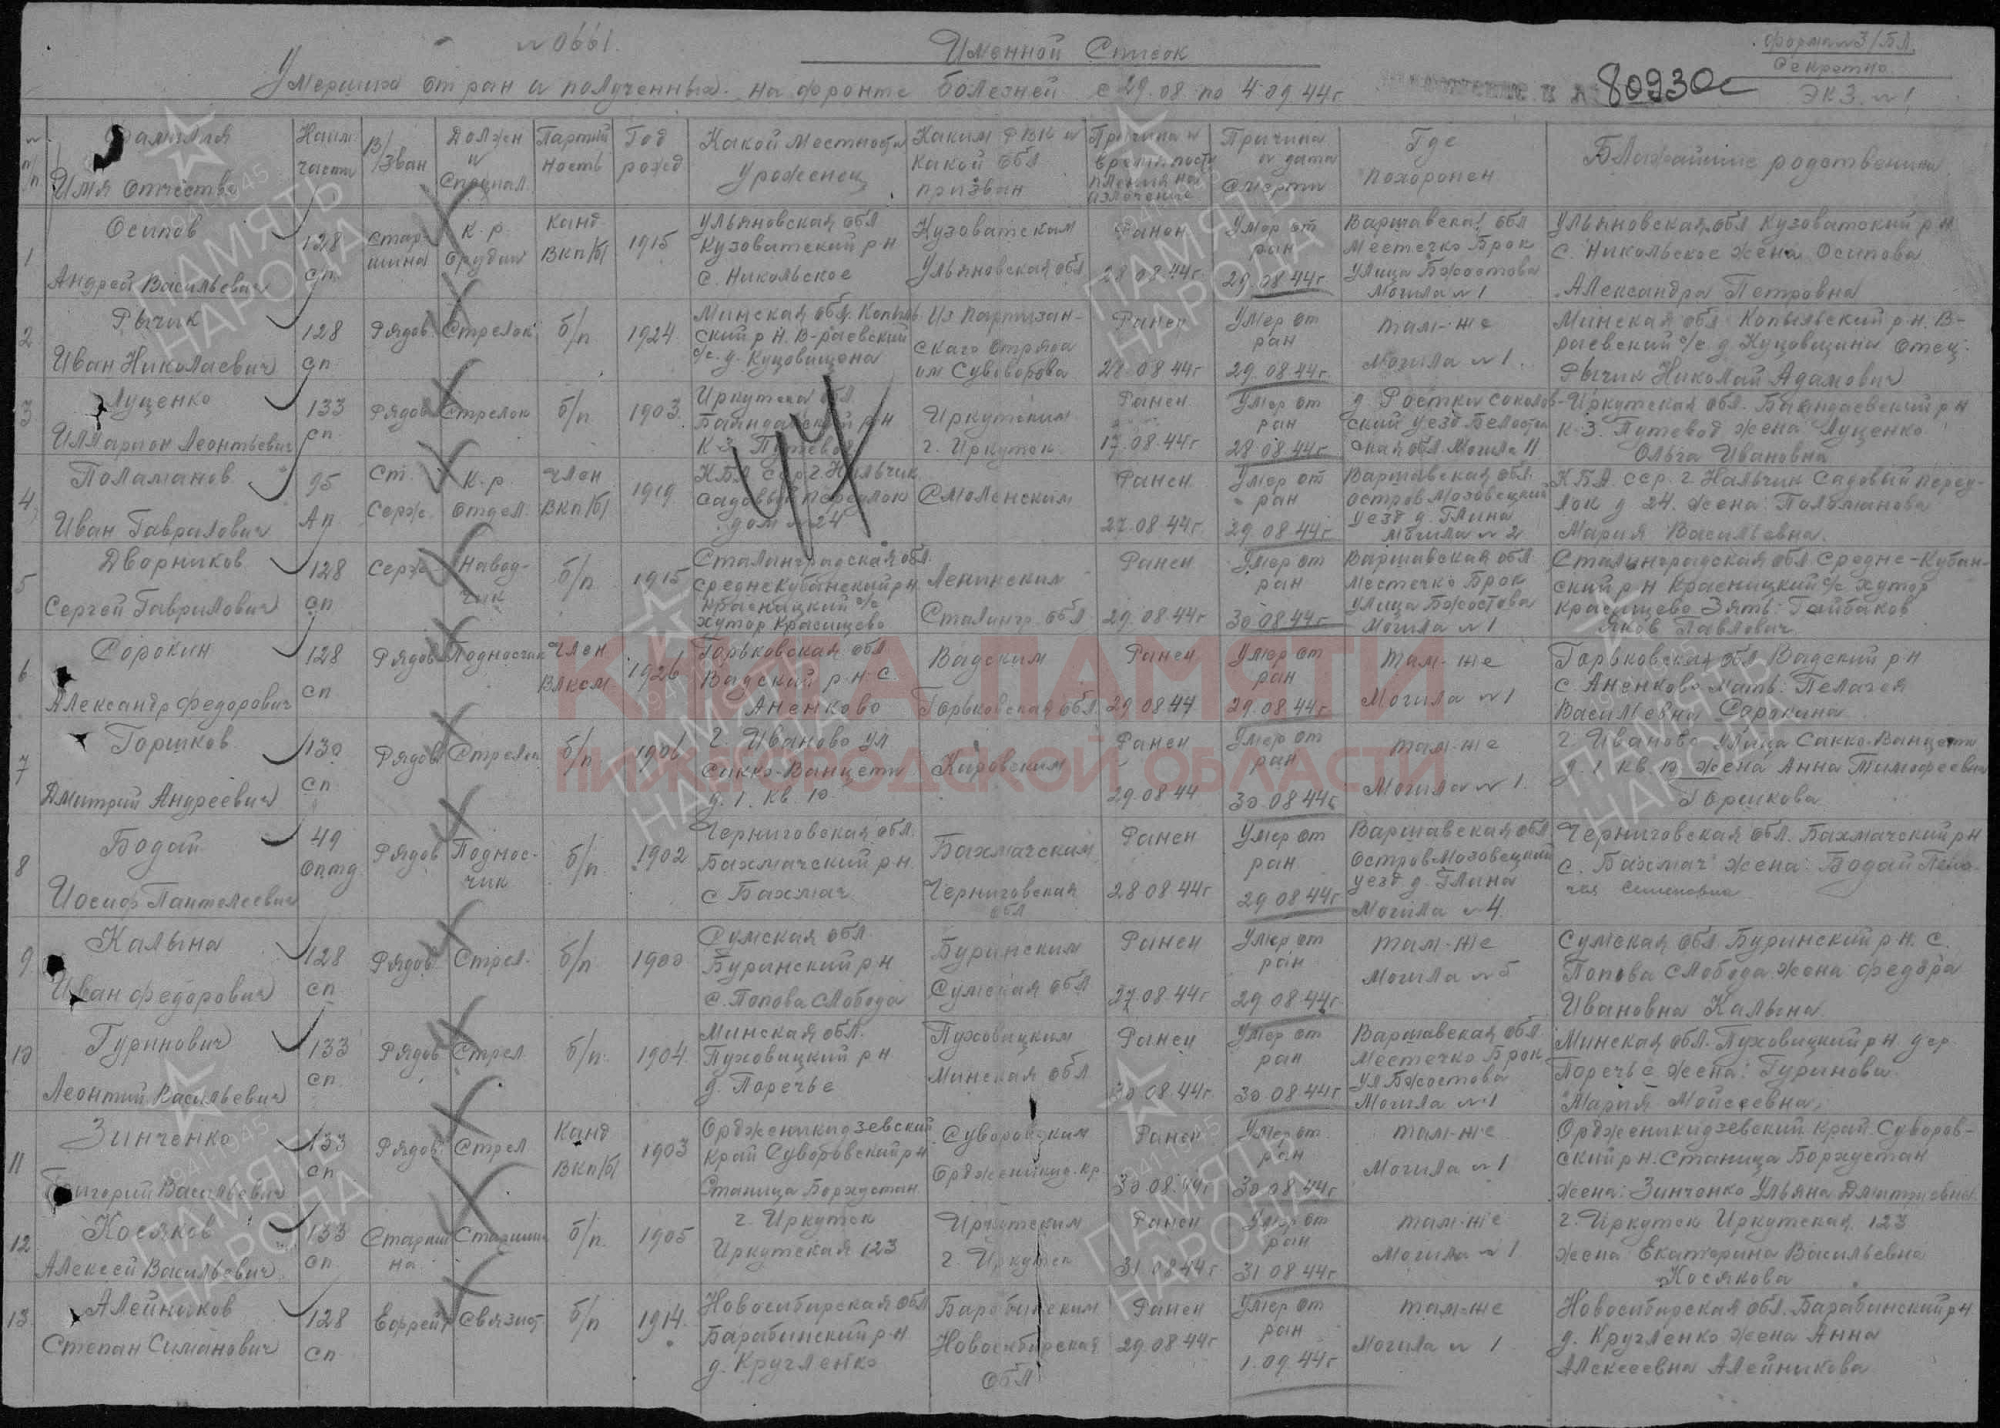 № 0661.
Именной Список
Форма №3/БЛ.
Секретно
Экз. №1
Умерших от ран и полученных на фронте болезней с 29.08 по 4.09.44г.
80930с
№ п/п
Фамилия Имя Отчество
Наим. части
В/Зван
Должен и специал.
Партийность
Год рожд
Какой местности Уроженец
Каким РВК и какой обл. призван
Причина и дата смерти
Где похоронен
Ближайшие родственники
1 Осипов Андрей Васильевич
128 сп
Старшина
К-р Орудия
Канд ВКП/б/
1915
Ульяновская обл Кузоватский р-н с. Никольское
Кузоватским Ульяновская обл
Ранен 28.08.44г
Умер от ран 29.08.44г
Варшавская обл Местечко Брок Улица Бжостова Могила №1
Ульяновская обл Кузоватский р-н с. Никольское Жена Осипова Александра Петровна
2 Рычик Иван Николаевич
128 сп
Рядов
Стрелок
б/п
1924
Минская обл. Копыльский р-н. В-раевский с/с. д. Куцовщина
Из партизанского отряда им Суворова
Ранен 28.08.44г
Умер от ран 29.08.44г.
Там-же Могила №1.
Минская обл Копыльский р-н. В-раевский с/с д Куцовщина Отец: Рычик Николай Адамович
3 Луценко Илларион Леонтьевич
133 сп
Рядов
Стрелок
б/п
1903.
Иркутская обл. Баяндаевский р-н К-З. Путевод
Иркутским г. Иркутск
Ранен 17.08.44г
Умер от ран 28.08.44г
д. Ростки Соколовский уезд Белостокская обл. Могила 11
Иркутская обл. Баяндаевский р-н К-З. Путевод жена Луценко Ольга Ивановна
4 Поламанов Иван Гаврилович
95 Ап
Ст. Серж.
К-р отдел.
Член ВКП/б/
1919.
КБА сср г. Нальчик Садовый переулок дом №24
Смоленским
Ранен 27.08.44г
Умер от ран 29.08.44г
Варшавская обл. Остров Мозовецкий уезд д. Глина Могила №2
КБА сср. г. Нальчик Садовый переулок д 24. жена: Поламанова Мария Васильевна.
5 Дворников Сергей Гаврилович
128 сп
Серж
Наводчик
б/п
1915
Сталинградская обл. Среднекубанский р-н Красницкий с/с хутор Красищево
Ленинским Сталингр. обл
Ранен 29.08.44г
Умер от ран 30.08.44г
Варшавская обл Местечко Брок Улица Бжостова Могила №1
Сталинградская обл Средне-Кубанский р-н Красницкий с/с Хутор Красищево Зять: Гайбаков Яков Павлович
6 Сорокин Александр Федорович
128 сп
Рядов
Подносчик
Член ВЛКСМ
1926
Горьковская обл Вадский р-н. с. Аненково
Вадским Горьковская обл.
Ранен 29.08.44
Умер от ран 29.08.44г
Там-же Могила №1
Горьковская обл Вадский р-н с. Аненково мать: Пелагея Васильевна Сорокина
7 Горшков Дмитрий Андреевич
130 сп
Рядов
Стрелок
б/п
1906
г Иваново ул Сакко-Ванцети д. 1. кв. 10
Кировским
Ранен 29.08.44
Умер от ран 30.08.44г
Там-же Могила №1.
г. Иваново Улица Сакко-Ванцети д. 1 кв 10 жена Анна Тимофеевна Горшкова
8 Бодай Иосиф Пантелеевич
49 Оптд
Рядов
Подносчик
б/п
1902
Черниговская обл. Бахмачский р-н. с Бахмач
Бахмачским Черниговская обл
Ранен 28.08.44г
Умер от ран 29.08.44г
Варшавская обл. Остров Мозовецкий уезд д. Глина Могила №4.
Черниговская обл. Бахмачский р-н с. Бахмач жена: Бодай Пелагея Семеновна
9 Калына Иван Федорович
128 сп
Рядов
Стрел.
б/п
1900
Сумская обл. Буринский р-н с. Попова Слобода
Буринским Сумская обл
Ранен 27.08.44г
Умер от ран 29.08.44г.
Там-же Могила №5
Сумская обл Буринский р-н. с. Попова Слобода жена Федора Ивановна Калына
10 Гуринович Леонтий Васильевич
133 сп
Рядов
Стрел.
б/п
1904.
Минская обл. Пуховицкий р-н д. Поречье
Пуховицким Минская обл
Ранен 30.08.44г
Умер от ран 30.08.44г
Варшавская обл. Местечко Брок Ул Бжостова Могила №1
Минская обл. Пуховицкий р-н дер. Поречье жена: Гуринович Мария Мойсеевна
11 Зинченко Григорий Васильевич
133 сп
Рядов
Стрел
Канд ВКП/б/
1903
Орджоникидзевский край Суворовский р-н Станица Боргустан
Суворовским Орджоникид. кр.
Ранен 30.08.44г
Умер от ран 30.08.44г
Там-же Могила №1
Орджоникидзевский край Суворовский р-н. Станица Боргустан жена: Зинченко Ульяна Дмитриевна
12 Косяков Алексей Васильевич
133 сп
Старшина
Старшина
б/п
1905
г. Иркутск Иркутская 123
Иркутским г. Иркутск
Ранен 31.08.44г
Умер от ран 31.08.44г
Там-же Могила №1
г. Иркутск Иркутская 123 жена Екатерина Васильевна Косякова
13. Алейников Степан Симанович
128 сп
Ефрейт
Связист
б/п
1914.
Новосибирская обл Барабинский р-н д. Кругленко
Барабинским Новосибирская обл
Ранен 29.08.44г
Умер от ран 1.09.44г
Там-же Могила №1
Новосибирская обл. Барабинский р-н. д. Кругленко жена Анна Алексеевна Алейникова
44
КНИГА ПАМЯТИ
НИЖЕГОРОДСКОЙ ОБЛАСТИ
ПАМЯТЬ НАРОДА
1941-1945